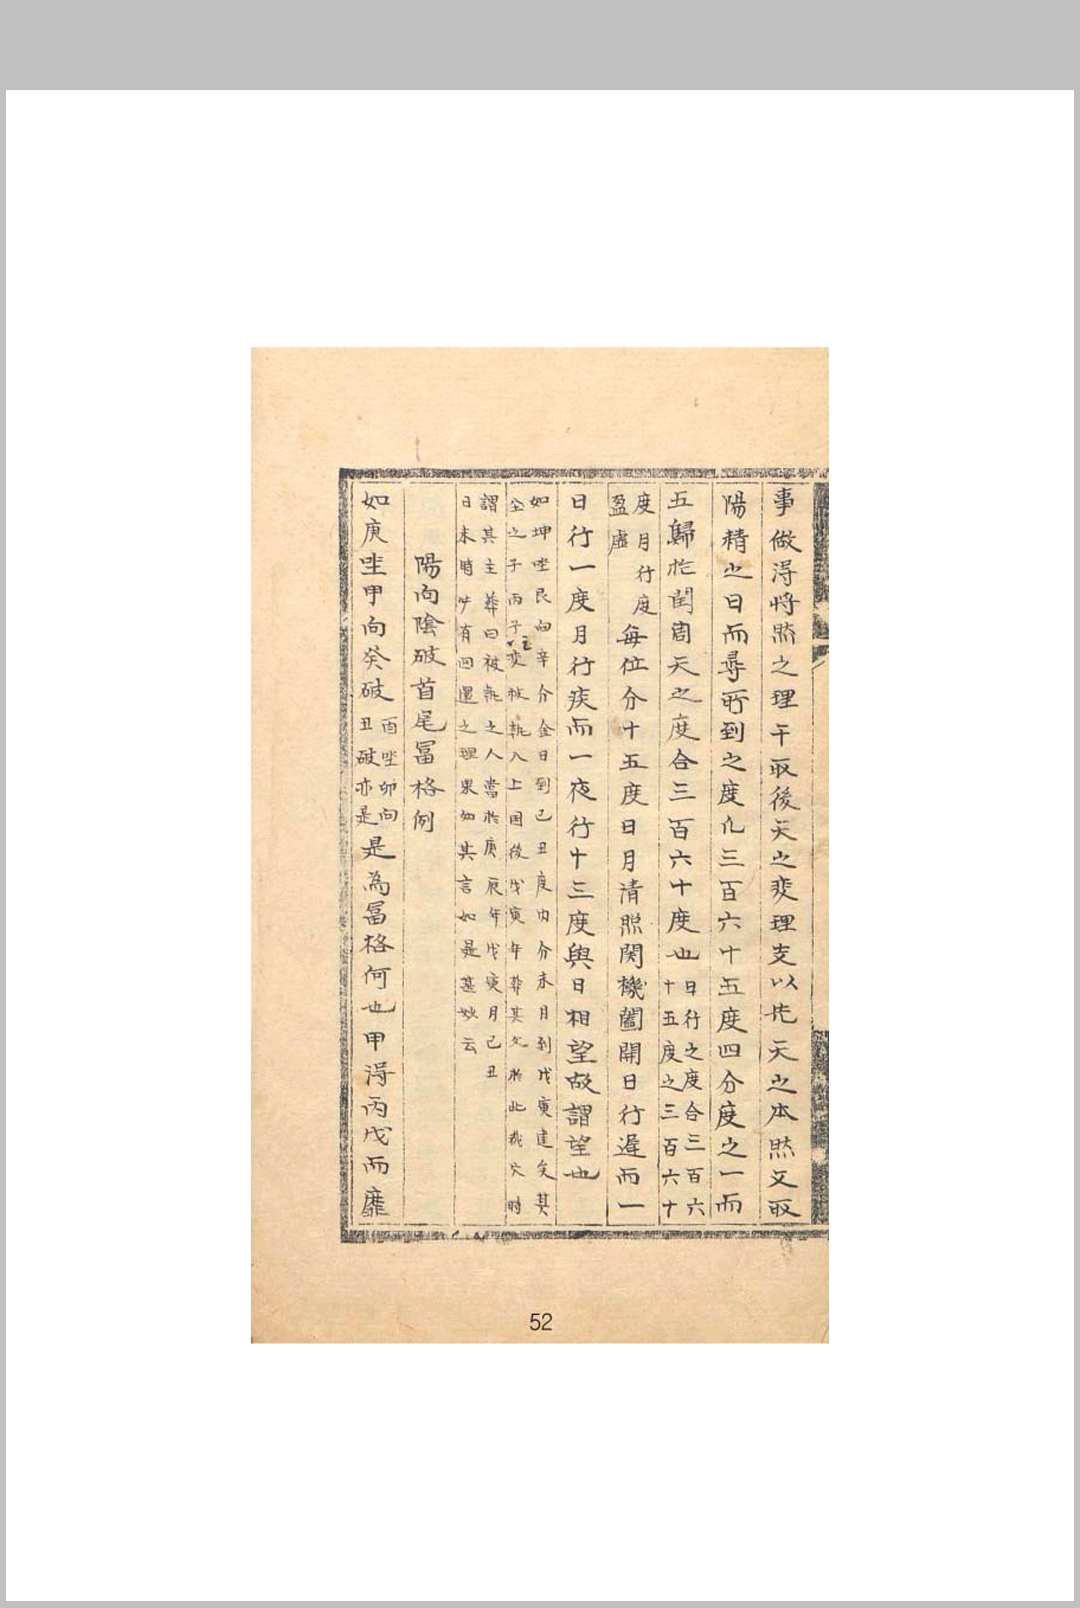 事做得將然之理干取後天之變理支以先天之本然又取
陽精之日而尋所到之度凡三百六十五度四分度之一而
五歸於閏周天之度合三百六十度也日行之度合三百六
十五度之三百六十
度月行度
盈虛
每位分十五度日月清照関機闔開日行遲而一
日行一度月行疾而一夜行十三度與日相望故謂望也
如坤坐艮向辛分金日到己丑度內分未月到戊寅建矣其
仝之子丙子主變被執入上困後戊寅年葬其父於此裁穴時
謂其主葬曰被執之人當於庚辰年戊寅月己丑
日未時必有回還之理果如其言如是甚妙云
陽向陰破首尾冨格例
如庚坐甲向癸破
酉坐卯向
丑破亦是
是為冨格何也甲得丙戊而龐
52